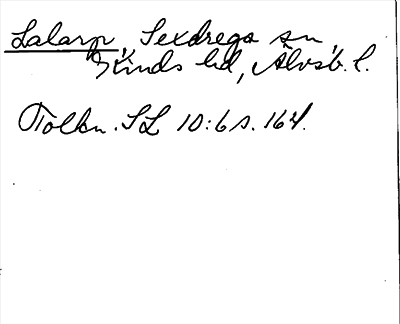 Lalarp, Sexdrega sn,
Kinds hd, Älvsb. l.
Tolkn. SL 10:6 s. 164.